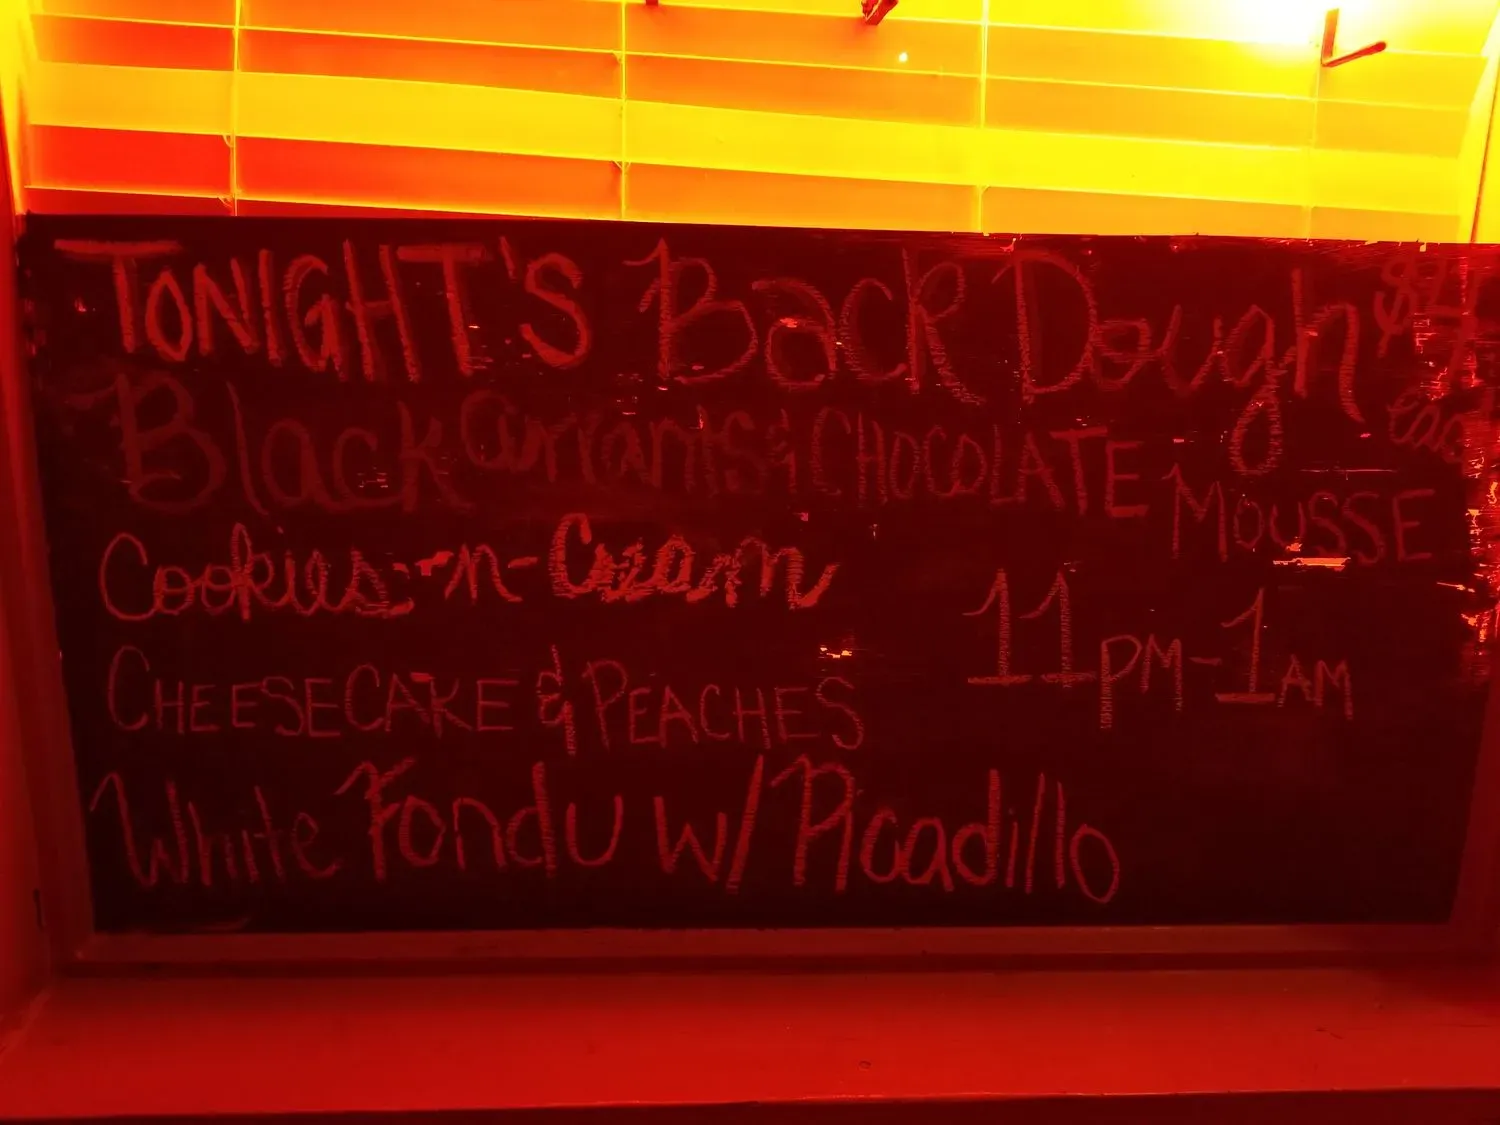 TONIGHT'S Back Dough
Black Currants & CHOCOLATE MOUSSE
Cookies-n-Cream
11PM-1AM
CHEESECAKE & PEACHES
White Fondu w/ Picadillo